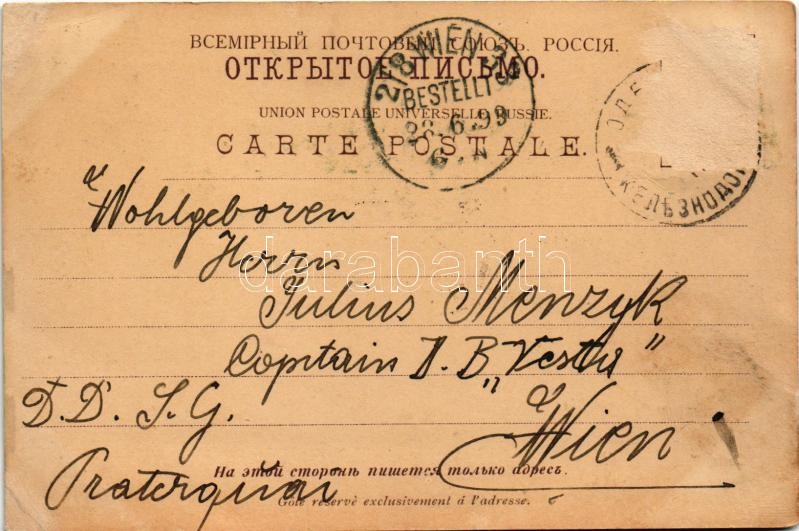 ВСЕМІРНЫЙ ПОЧТОВЫЙ СОЮЗЪ. РОССІЯ.
ОТКРЫТОЕ ПИСЬМО.
UNION POSTALE UNIVERSELLE. RUSSIE.
CARTE POSTALE.
2/8 WIEN
BESTELLT
28.6.99
ОДЕ
ЖЕЛѢЗНОДО
Wohlgeboren
Herrn
Julius Menzyk
Capitain D. B. „Vesta"
D. D. S. G.
Wien!
Praterquai
На этой сторонѣ пишется только адресъ.
Côté réservé exclusivement à l'adresse.
darabanth